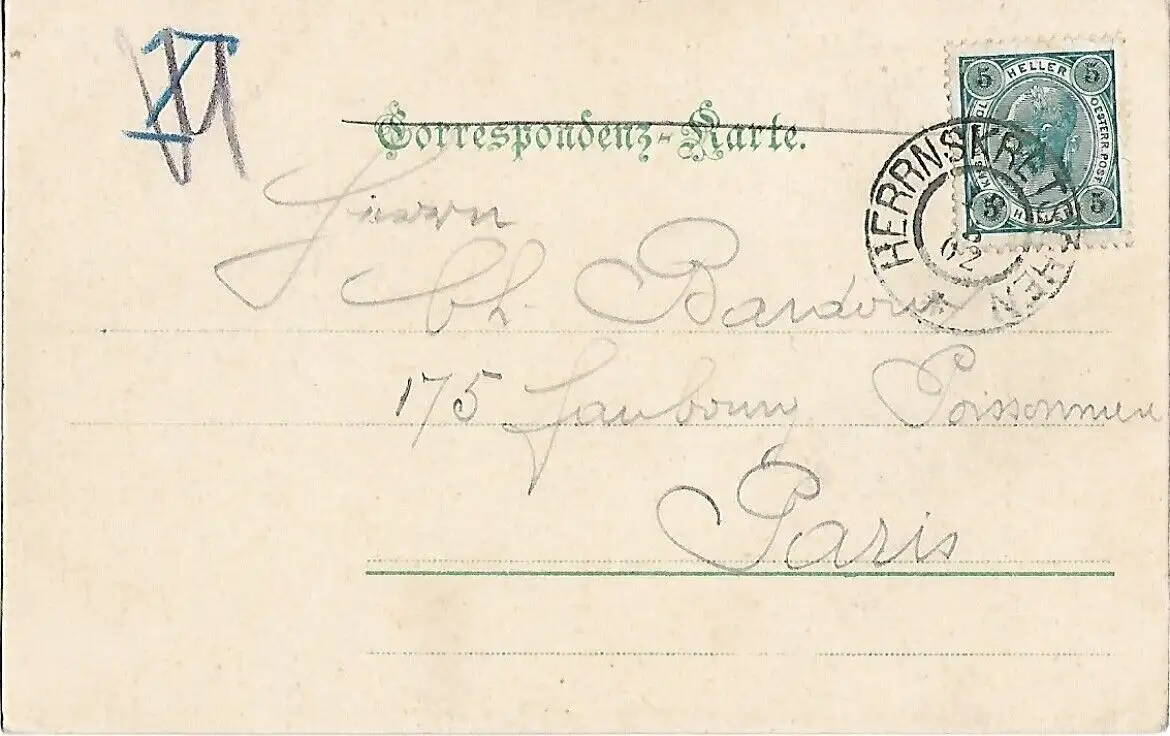 Correspondenz-Karte.
5 HELLER 5
OESTERR. POST
5 HELLER 5
HERRNSKRETSCHEN
02
Herrn
Ch. Bardoux
175 faubourg Poissonniere
Paris